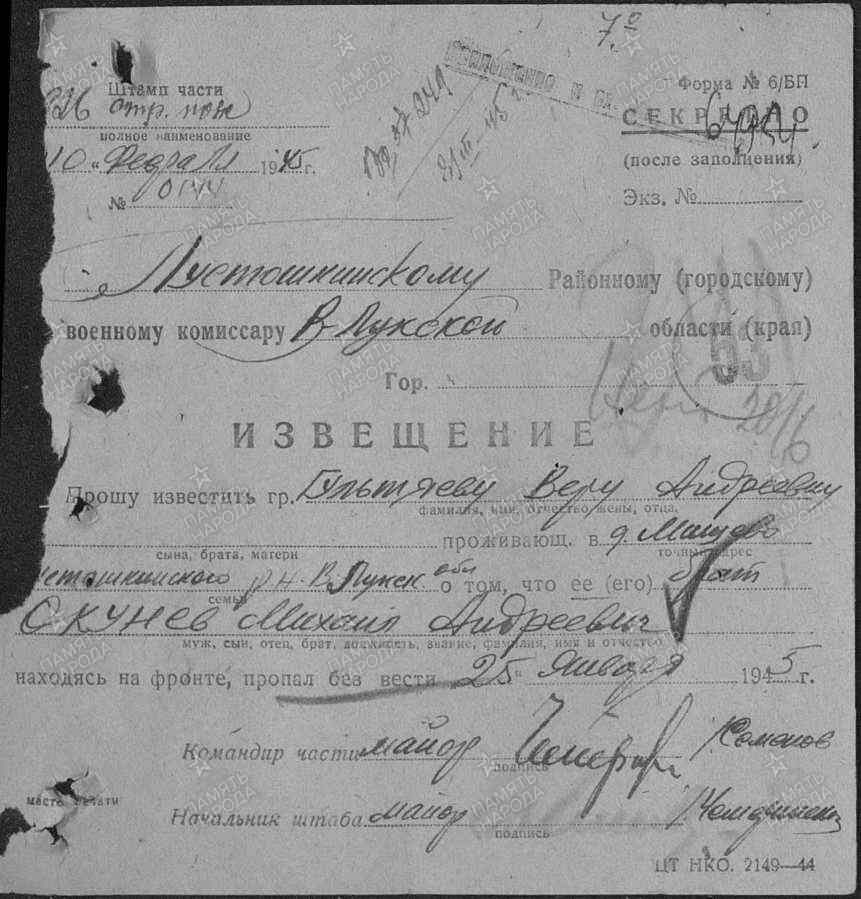 7.
Штамп части
Форма № 6/БП
стр. полк
СЕКРЕТНО
полное наименование
10 "Февраля 1945 г.
(после заполнения)
№ 0144
Экз. №
Пустошкинскому Районному (городскому)
военному комиссару В-Лукской области (края)
Гор.
53
20/6
ИЗВЕЩЕНИЕ
Прошу известить гр. Гультяеву Веру Андреевну
фамилия, имя, отчество жены, отца,
проживающ. в д. Мишово
сына, брата, матери точный адрес
устошкинского р-н. В. Лукск обл о том, что ее (его) брат
семьи
Окунев Михаил Андреевич
муж, сын, отец, брат, должность, звание, фамилия, имя и отчество
находясь на фронте, пропал без вести 25 " Января 1945 г.
Командир части майор /Семенов
подпись
место печати
Начальник штаба майор
подпись
ЦТ НКО. 2149—44
ПАМЯТЬ НАРОДА